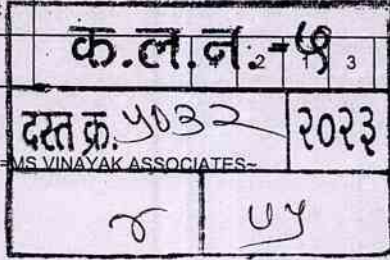 क.ल.न.-५
2 1 3
दस्त क्र. ५०३२ २०२३
=MS VINAYAK ASSOCIATES~
४ ७५